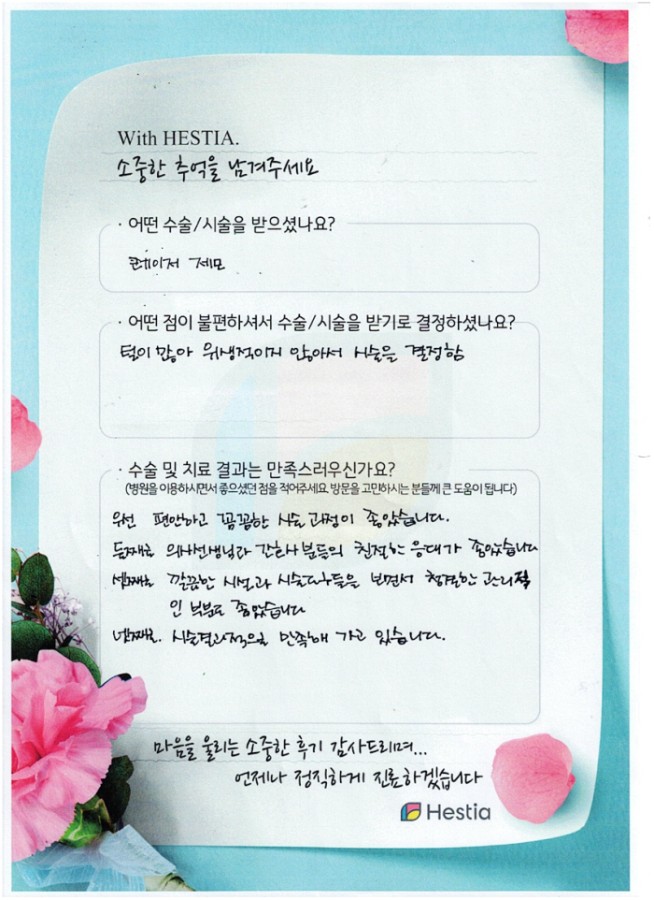 With HESTIA.
소중한 추억을 남겨주세요
· 어떤 수술/시술을 받으셨나요?
레이저 제모
· 어떤 점이 불편하셔서 수술/시술을 받기로 결정하셨나요?
털이 많아 위생적이지 않아서 시술을 결정함
· 수술 및 치료 결과는 만족스러우신가요?
(병원을 이용하시면서 좋으셨던 점을 적어주세요. 방문을 고민하시는 분들께 큰 도움이 됩니다)
우선 편안하고 꼼꼼한 시술 과정이 좋았습니다.
둘째로 의사선생님과 간호사 분들의 친절한 응대가 좋았습니다
셋째로 깔끔한 시설과 시술도구들을 보면서 청결한 관리적
인 부분도 좋았습니다
넷째로. 시술결과적으로 만족해 가고 있습니다.
마음을 울리는 소중한 후기 감사드리며...
언제나 정직하게 진료하겠습니다
Hestia